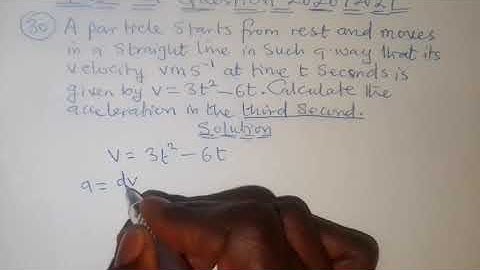 Question 2020/2021
30 A particle starts from rest and moves
in a straight line in such a way that its
velocity vms⁻¹ at time t seconds is
given by v = 3t² - 6t. Calculate the
acceleration in the third second.
Solution
V = 3t² - 6t
a = dv